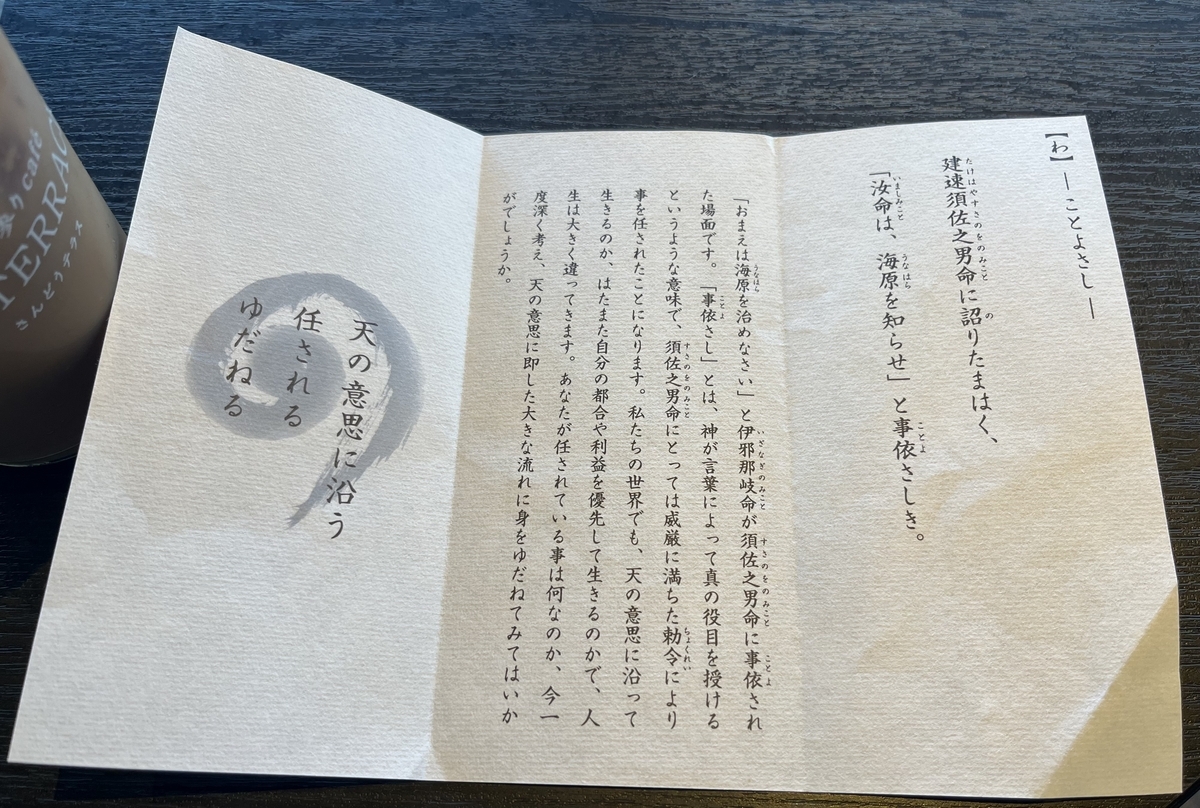 【わ】― ことよさし ―
建速須佐之男命に詔りたまはく、
「汝命は、海原を知らせ」と事依さしき。
「おまえは海原を治めなさい」と伊邪那岐命が須佐之男命に事依され
た場面です。「事依さし」とは、神が言葉によって真の役目を授ける
というような意味で、須佐之男命にとっては威厳に満ちた勅令により
事を任されたことになります。私たちの世界でも、天の意思に沿って
生きるのか、はたまた自分の都合や利益を優先して生きるのかで、人
生は大きく違ってきます。あなたが任されている事は何なのか、今一
度深く考え、天の意思に即した大きな流れに身をゆだねてみてはいか
がでしょうか。
天の意思に沿う
任される
ゆだねる
参りcafé
TERRACE
さんどうテラス